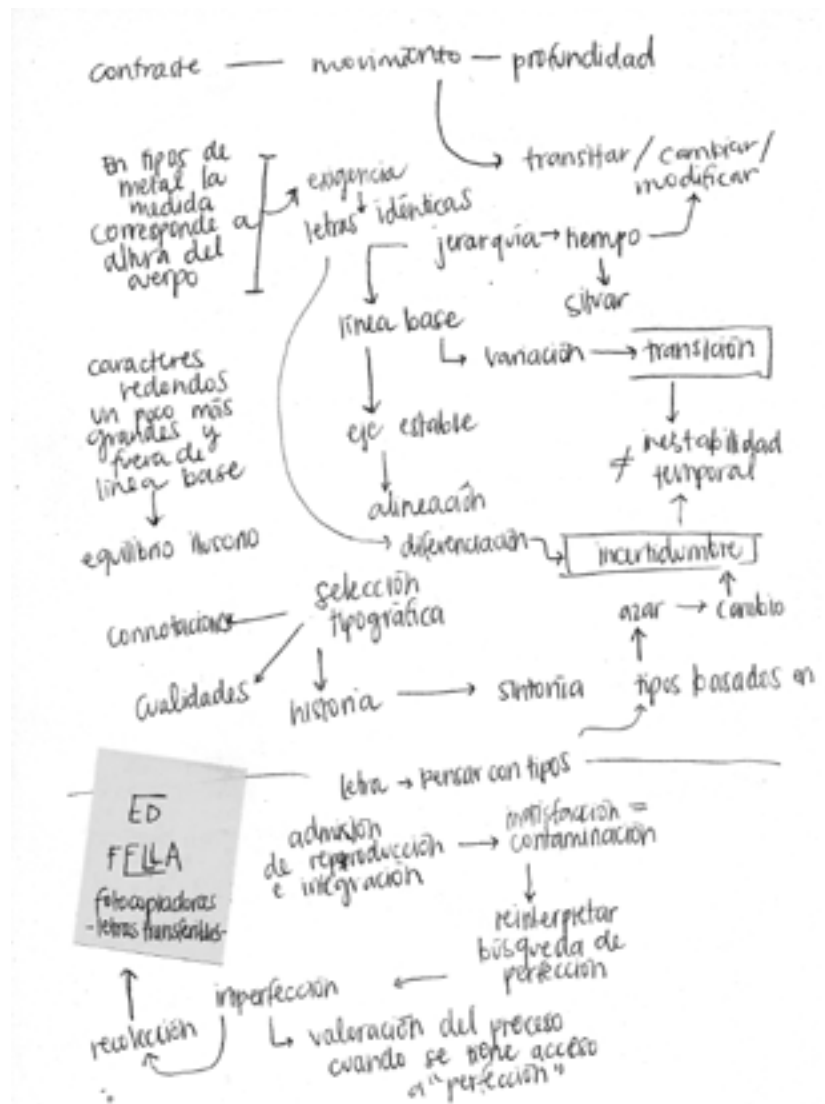 contraste — movimiento — profundidad
En tipos de
metal la
medida
corresponde a
altura del
cuerpo
exigencia
letras idénticas
transitar / cambiar /
modificar
jerarquía → tiempo
situar
línea base
variación → transición
caracteres
redondos
un poco más
grandes y
fuera de
línea base
equilibrio ilusorio
eje estable
alineación
≠ inestabilidad
temporal
diferenciación
incertidumbre
selección
tipográfica
connotaciones
cualidades
historia → sintonía
azar → cambio
tipos basados en
letra → pensar con tipos
ED
FELLA
fotocopiadoras
-letras transferibles-
admisión
de reproducción
e integración
insatisfacción =
contaminación
reinterpretar
búsqueda de
perfección
imperfección
recolección
valoración del proceso
cuando se tiene acceso
a "perfección"